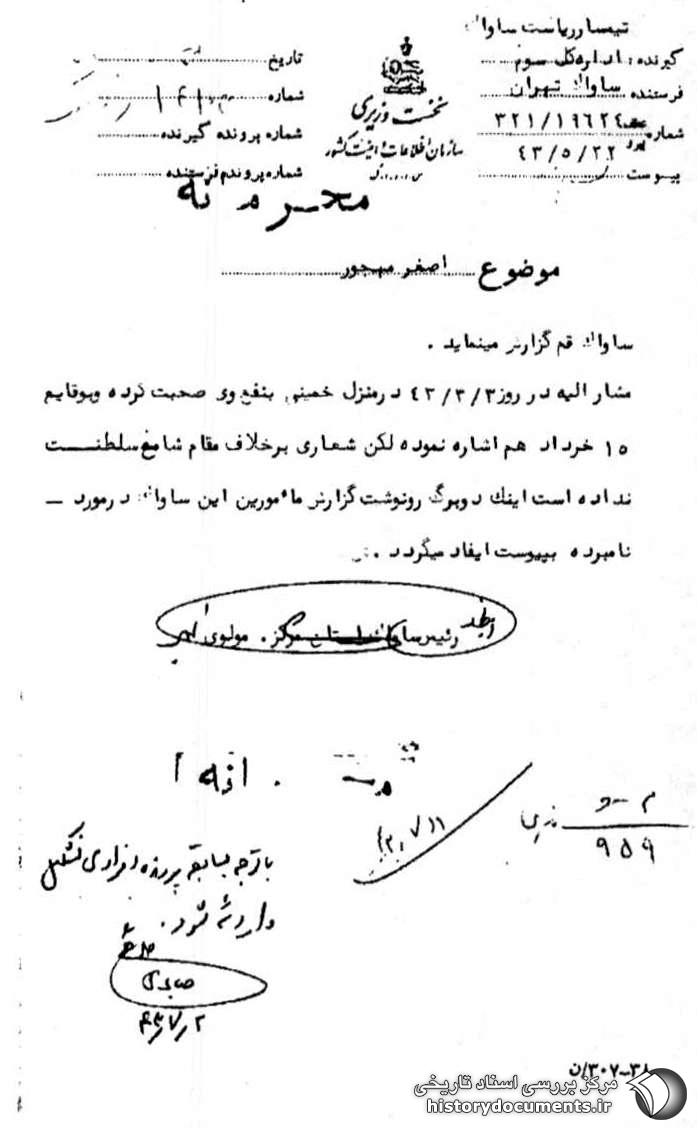 تیمسار ریاست ساواک
گیرنده: اداره کل سوم
فرستنده ساواک تهران
شماره ۳۲۱/۱۹۶۲۴
۴۳/۵/۲۲
پیوست
نخست وزیری
سازمان اطلاعات و امنیت کشور
س.ا.و.ا.ک
تاریخ
شماره
شماره پرونده گیرنده
شماره پرونده فرستنده
محرمانه
موضوع اصغر مهجور
ساواک قم گزارش مینماید.
مشارالیه در روز ۴۳/۳/۳ در منزل خمینی بنفع وی صحبت کرده وبوقایع
۱۵ خرداد هم اشاره نموده لکن شعاری برخلاف مقام شامخ سلطنت
نداده است اینک دوبرگ رونوشت گزارش مأمورین این ساواک در مورد –
نامبرده بپیوست ایفاد میگردد.
رئیس ساواک استان مرکز. مولوی
م-و
۹۵۹
۷/۲
با توجه بسابقه پرونده انفرادی تشکیل
و ارائه شود.
صابری
۴۳/۷/۲
۳۸-۳۰۷/ن
مرکز بررسی اسناد تاریخی
historydocuments.ir